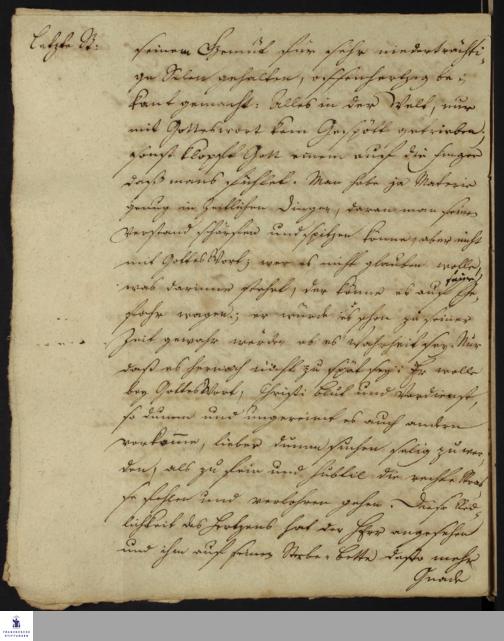 Letzte St:
seinem Gemüt für sehr niederträchti-
ge Selen gehalten, offenhertzig be-
kant gemacht: Alles in der Welt, nur
mit Gotteswort kein Gespött getrieben,
sonst klopfft Gott einem auf die Finger
daß mans fühlet. Man habe ja Materie
genug in zeitlichen Dingen, daran man sein
Verstand schärffen und spitzen könne, aber nicht
mit Gottes Wort; wer es nicht glauben wolle,
was darinne stehet, der könne es auf seine Ge-
fahr wagen; er würde es schon zu seiner
Zeit gewahr werden ob es Wahrheit sey. Nur
daß es hernach nicht zu spät sey: Er wolle
bey Gottes Wort, Christi Blut und Verdienst,
so dumm und ungereimt es auch andern
vorkomme, lieber dumm suchen selig zu wer-
den, als zu klein und subtil die rechte Straß
se fehlen und verlohren gehen. Diese Red-
lichkeit des Hertzens hat der HErr angesehen
und ihm auf seinem Sterbe-bette desto mehr
Gnade
FRANCKESCHE
STIFTUNGEN